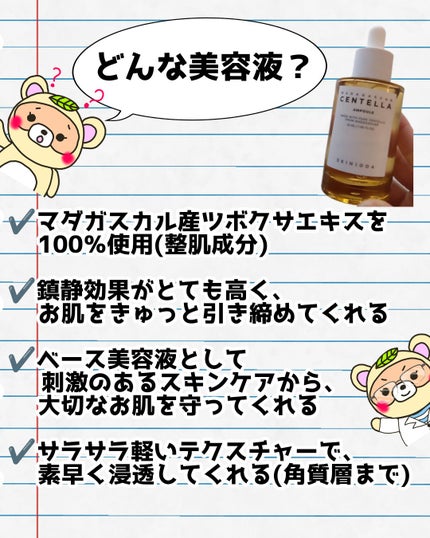 どんな美容液？
CENTELLA
AMPOULE
SKIN1004
✔マダガスカル産ツボクサエキスを
100%使用(整肌成分)
✔鎮静効果がとても高く、
お肌をきゅっと引き締めてくれる
✔ベース美容液として
刺激のあるスキンケアから、
大切なお肌を守ってくれる
✔サラサラ軽いテクスチャーで、
素早く浸透してくれる(角質層まで)